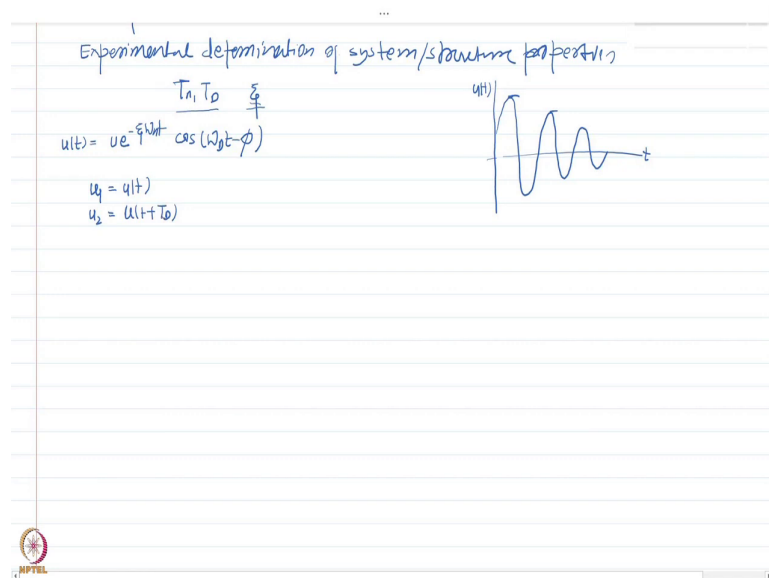 ...
Experimental determination of system/structure properties
Tn, TD ξ
u(t) = ue^-ξωnt cos(ωDt-φ)
u(t)
t
u1 = u(t)
u2 = u(t+TD)
NPTEL